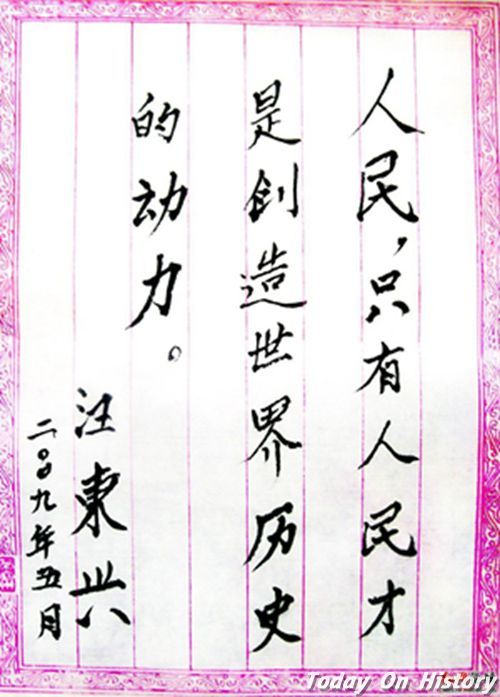 人民,只有人民才
是创造世界历史
的动力。
汪东兴
二〇〇九年五月
Today On History